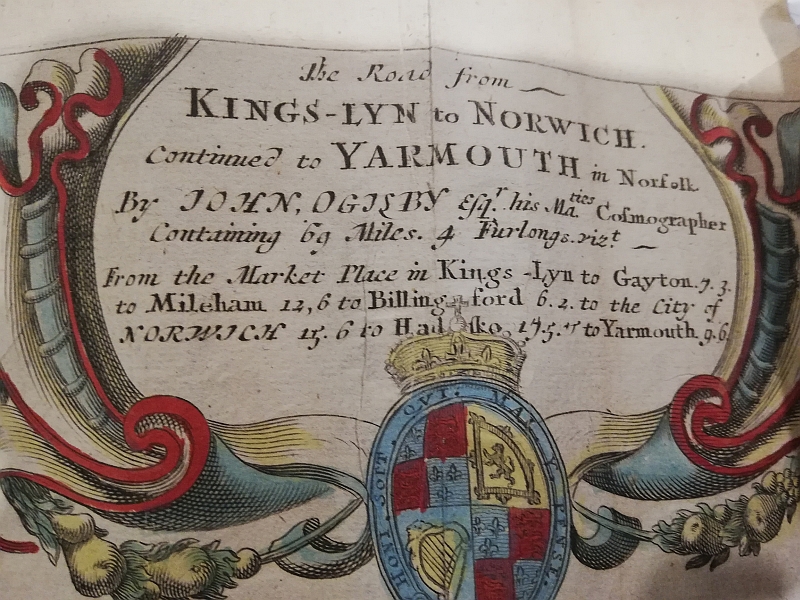 The Road from
KINGS-LYN to NORWICH.
Continued to YARMOUTH in Norfolk
By IOHN, OGILBY Esqr. his Maties Cosmographer
Containing 69 Miles. 4 Furlongs. vizt
From the Market Place in Kings-Lyn to Gayton. 7. 3.
to Mileham 12,6 to Billingford 6. 2. to the City of
NORWICH 15. 6 to Hadsko, 17,5. to Yarmouth. 9. 6.
HONI. SOIT. QVI. MAL. Y. PENSE.